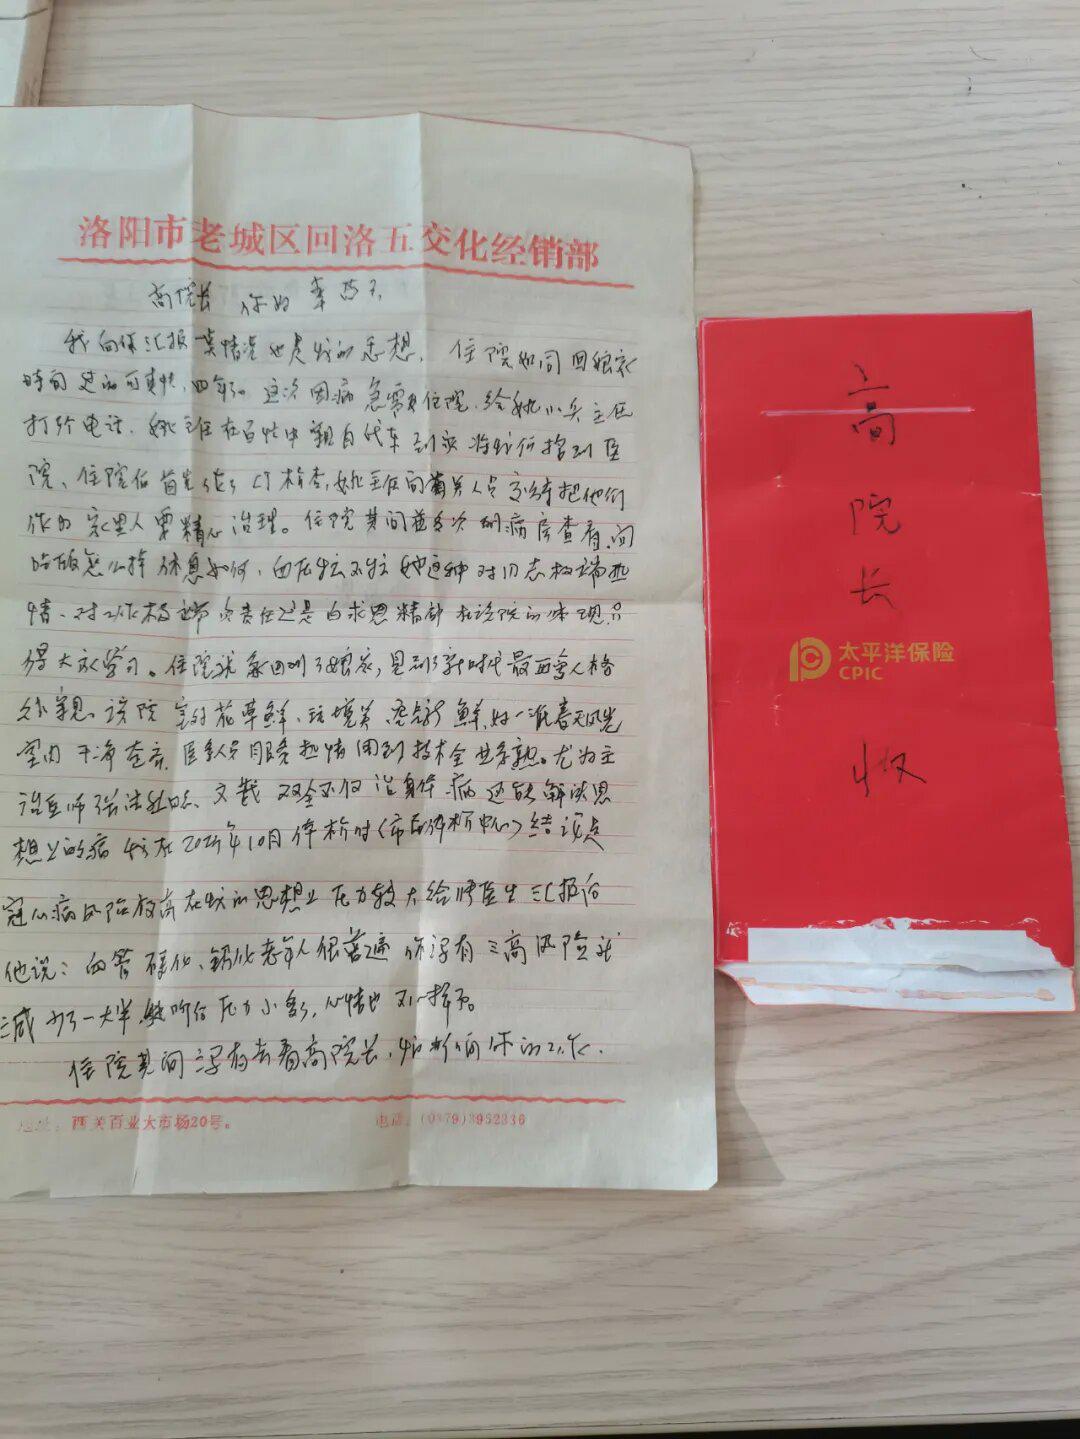 洛阳市老城区回洛五交化经销部
高院长 你好
我向你汇报 情况也是我的思想。住院如同回娘家
时间过的可真快,四年了。这次因病急需要住院,给姚小兵主任
打个电话,姚主任在百忙中亲自代车到家将我们接到医
院、住院后首先做了CT检查,姚主任向有关人员交待把他们
作为家里人要精心治理。住院其间并多次到病房查看,问
吃饭怎么样休息如何,血压 这种对同志极端热
情、对工作极端负责任这是白求恩精神在该院的体现,
得大家学习。住院就象回到了娘家,见到了新时代最 人格
外亲。该院 花草鲜、环境美 鲜,好一派春天风光
室内干净 医务人员服务热情周到技术全业务熟。尤为主
治医师张 文武双全不仅治身体病还能解决思
想上的病 我在 10月体检时(市 体检中心)结论是
冠心病风险较高在我的思想上压力较大给 医生汇报后
他说:血管硬化、钙化老年人很普遍 你没有三高风险就
减少了一大半,我听后压力小多了,心情也不一样了。
住院其间没有去看高院长,
地址:西关百业大市场20号。 电话:(0379)3952336
高院长 收
太平洋保险
CPIC